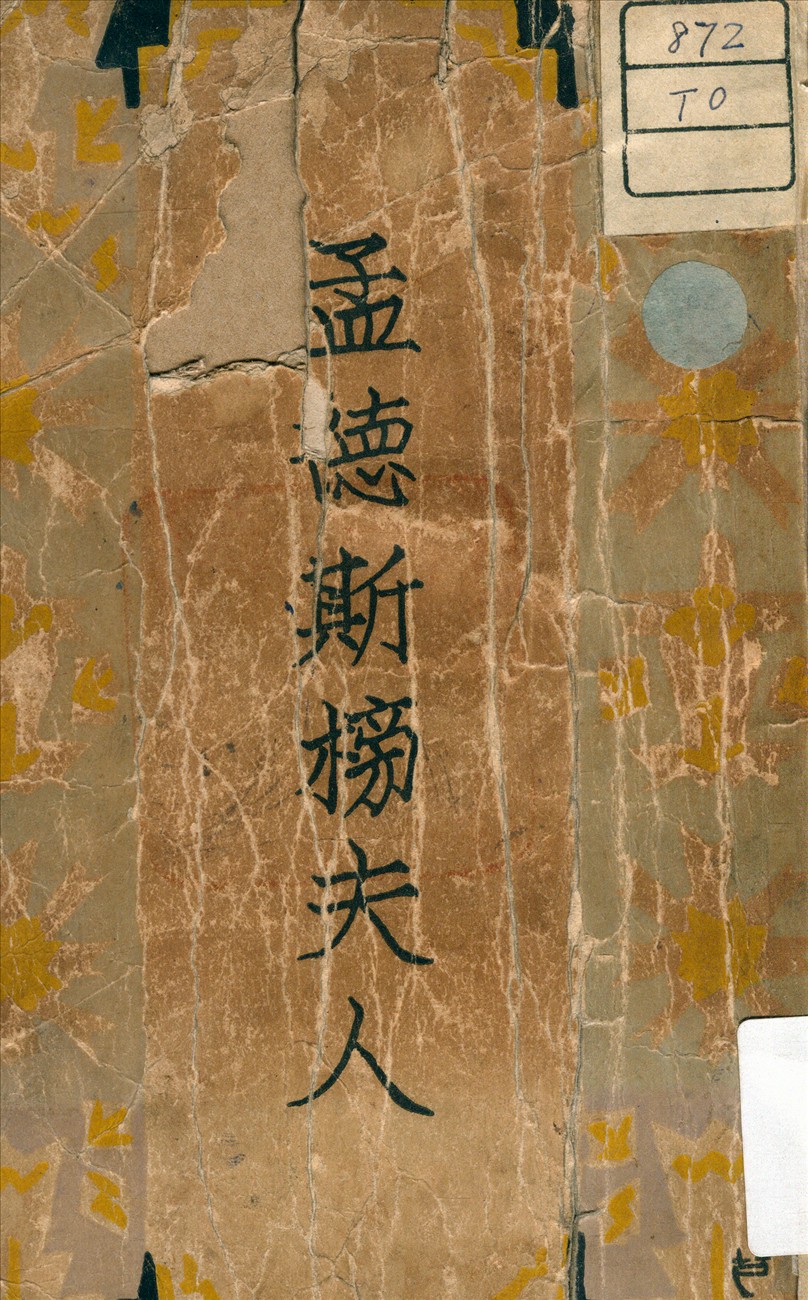 872
TO
孟德斯榜夫人